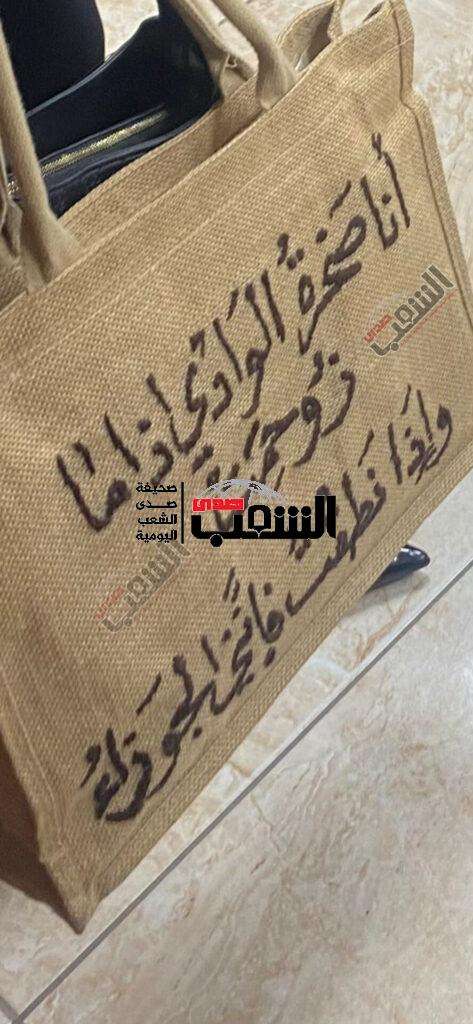 أنا صَخرةُ الوَادِي إذا مَا
زُوحِمَتْ
وإِذَا نَطَقتُ فإِنَّنِي الجَوزَاءُ
صدى
الشعب
صحيفة
صدى
الشعب
اليومية
صدى
الشعب
الشعب